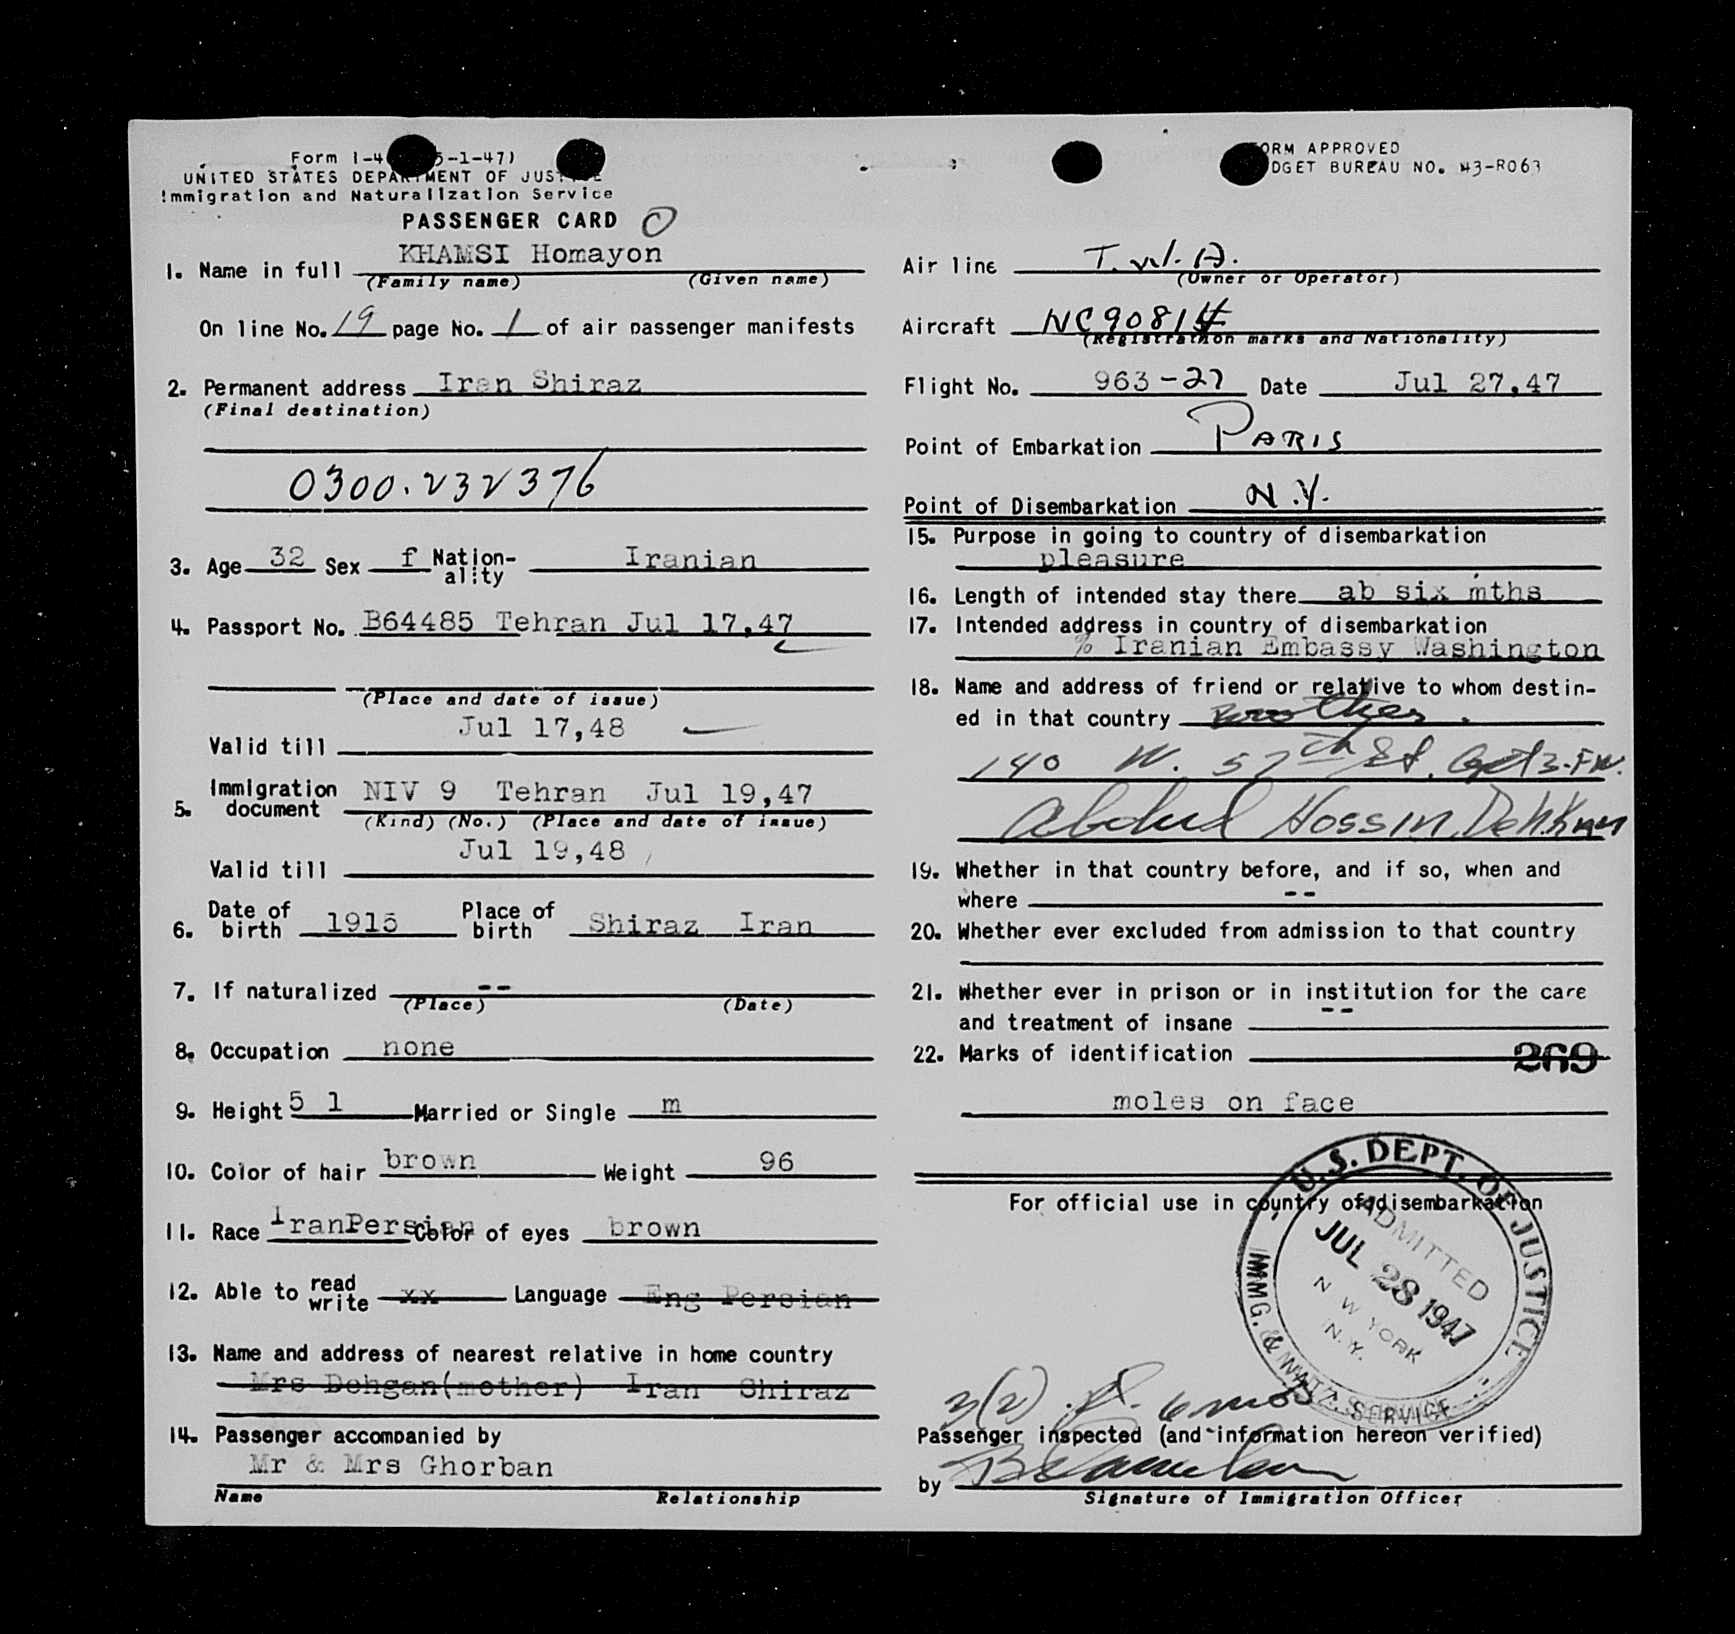 Form I-4 5-1-47)
UNITED STATES DEPARTMENT OF JUSTICE
Immigration and Naturalization Service
PASSENGER CARD
FORM APPROVED
BUDGET BUREAU NO. 43-R063
1. Name in full KHAMSI Homayon
(Family name) (Given name)
On line No. 19 page No. 1 of air passenger manifests
2. Permanent address Iran Shiraz
(Final destination)
0300.232376
3. Age 32 Sex f Nation-
ality Iranian
4. Passport No. B64485 Tehran Jul 17,47
(Place and date of issue)
Valid till Jul 17,48
5. Immigration
document NIV 9 Tehran Jul 19,47
(Kind) (No.) (Place and date of issue)
Valid till Jul 19,48
6. Date of
birth 1915 Place of
birth Shiraz Iran
7. If naturalized --
(Place) (Date)
8. Occupation none
9. Height 5 1 Married or Single m
10. Color of hair brown Weight 96
11. Race IranPersian Color of eyes brown
12. Able to read
write xx Language Eng Persian
13. Name and address of nearest relative in home country
Mrs Dehgan(mother) Iran Shiraz
14. Passenger accompanied by
Mr & Mrs Ghorban
Name Relationship
Air line T.W.A.
(Owner or Operator)
Aircraft NC90814
(Registration marks and Nationality)
Flight No. 963-27 Date Jul 27,47
Point of Embarkation PARIS
Point of Disembarkation N.Y.
15. Purpose in going to country of disembarkation
pleasure
16. Length of intended stay there ab six mths
17. Intended address in country of disembarkation
% Iranian Embassy Washington
18. Name and address of friend or relative to whom destin-
ed in that country Brother.
140 W. 57th St. Apt 3.FW.
Abdul Hossin Dehkan
19. Whether in that country before, and if so, when and
where --
20. Whether ever excluded from admission to that country
21. Whether ever in prison or in institution for the care
and treatment of insane --
22. Marks of identification 269
moles on face
For official use in country of disembarkation
U.S. DEPT. OF JUSTICE
IMMG. & NATZ. SERVICE
ADMITTED
JUL 28 1947
N W YORK
N.Y.
3(2) 6 mos
Passenger inspected (and information hereon verified)
by
Signature of Immigration Officer